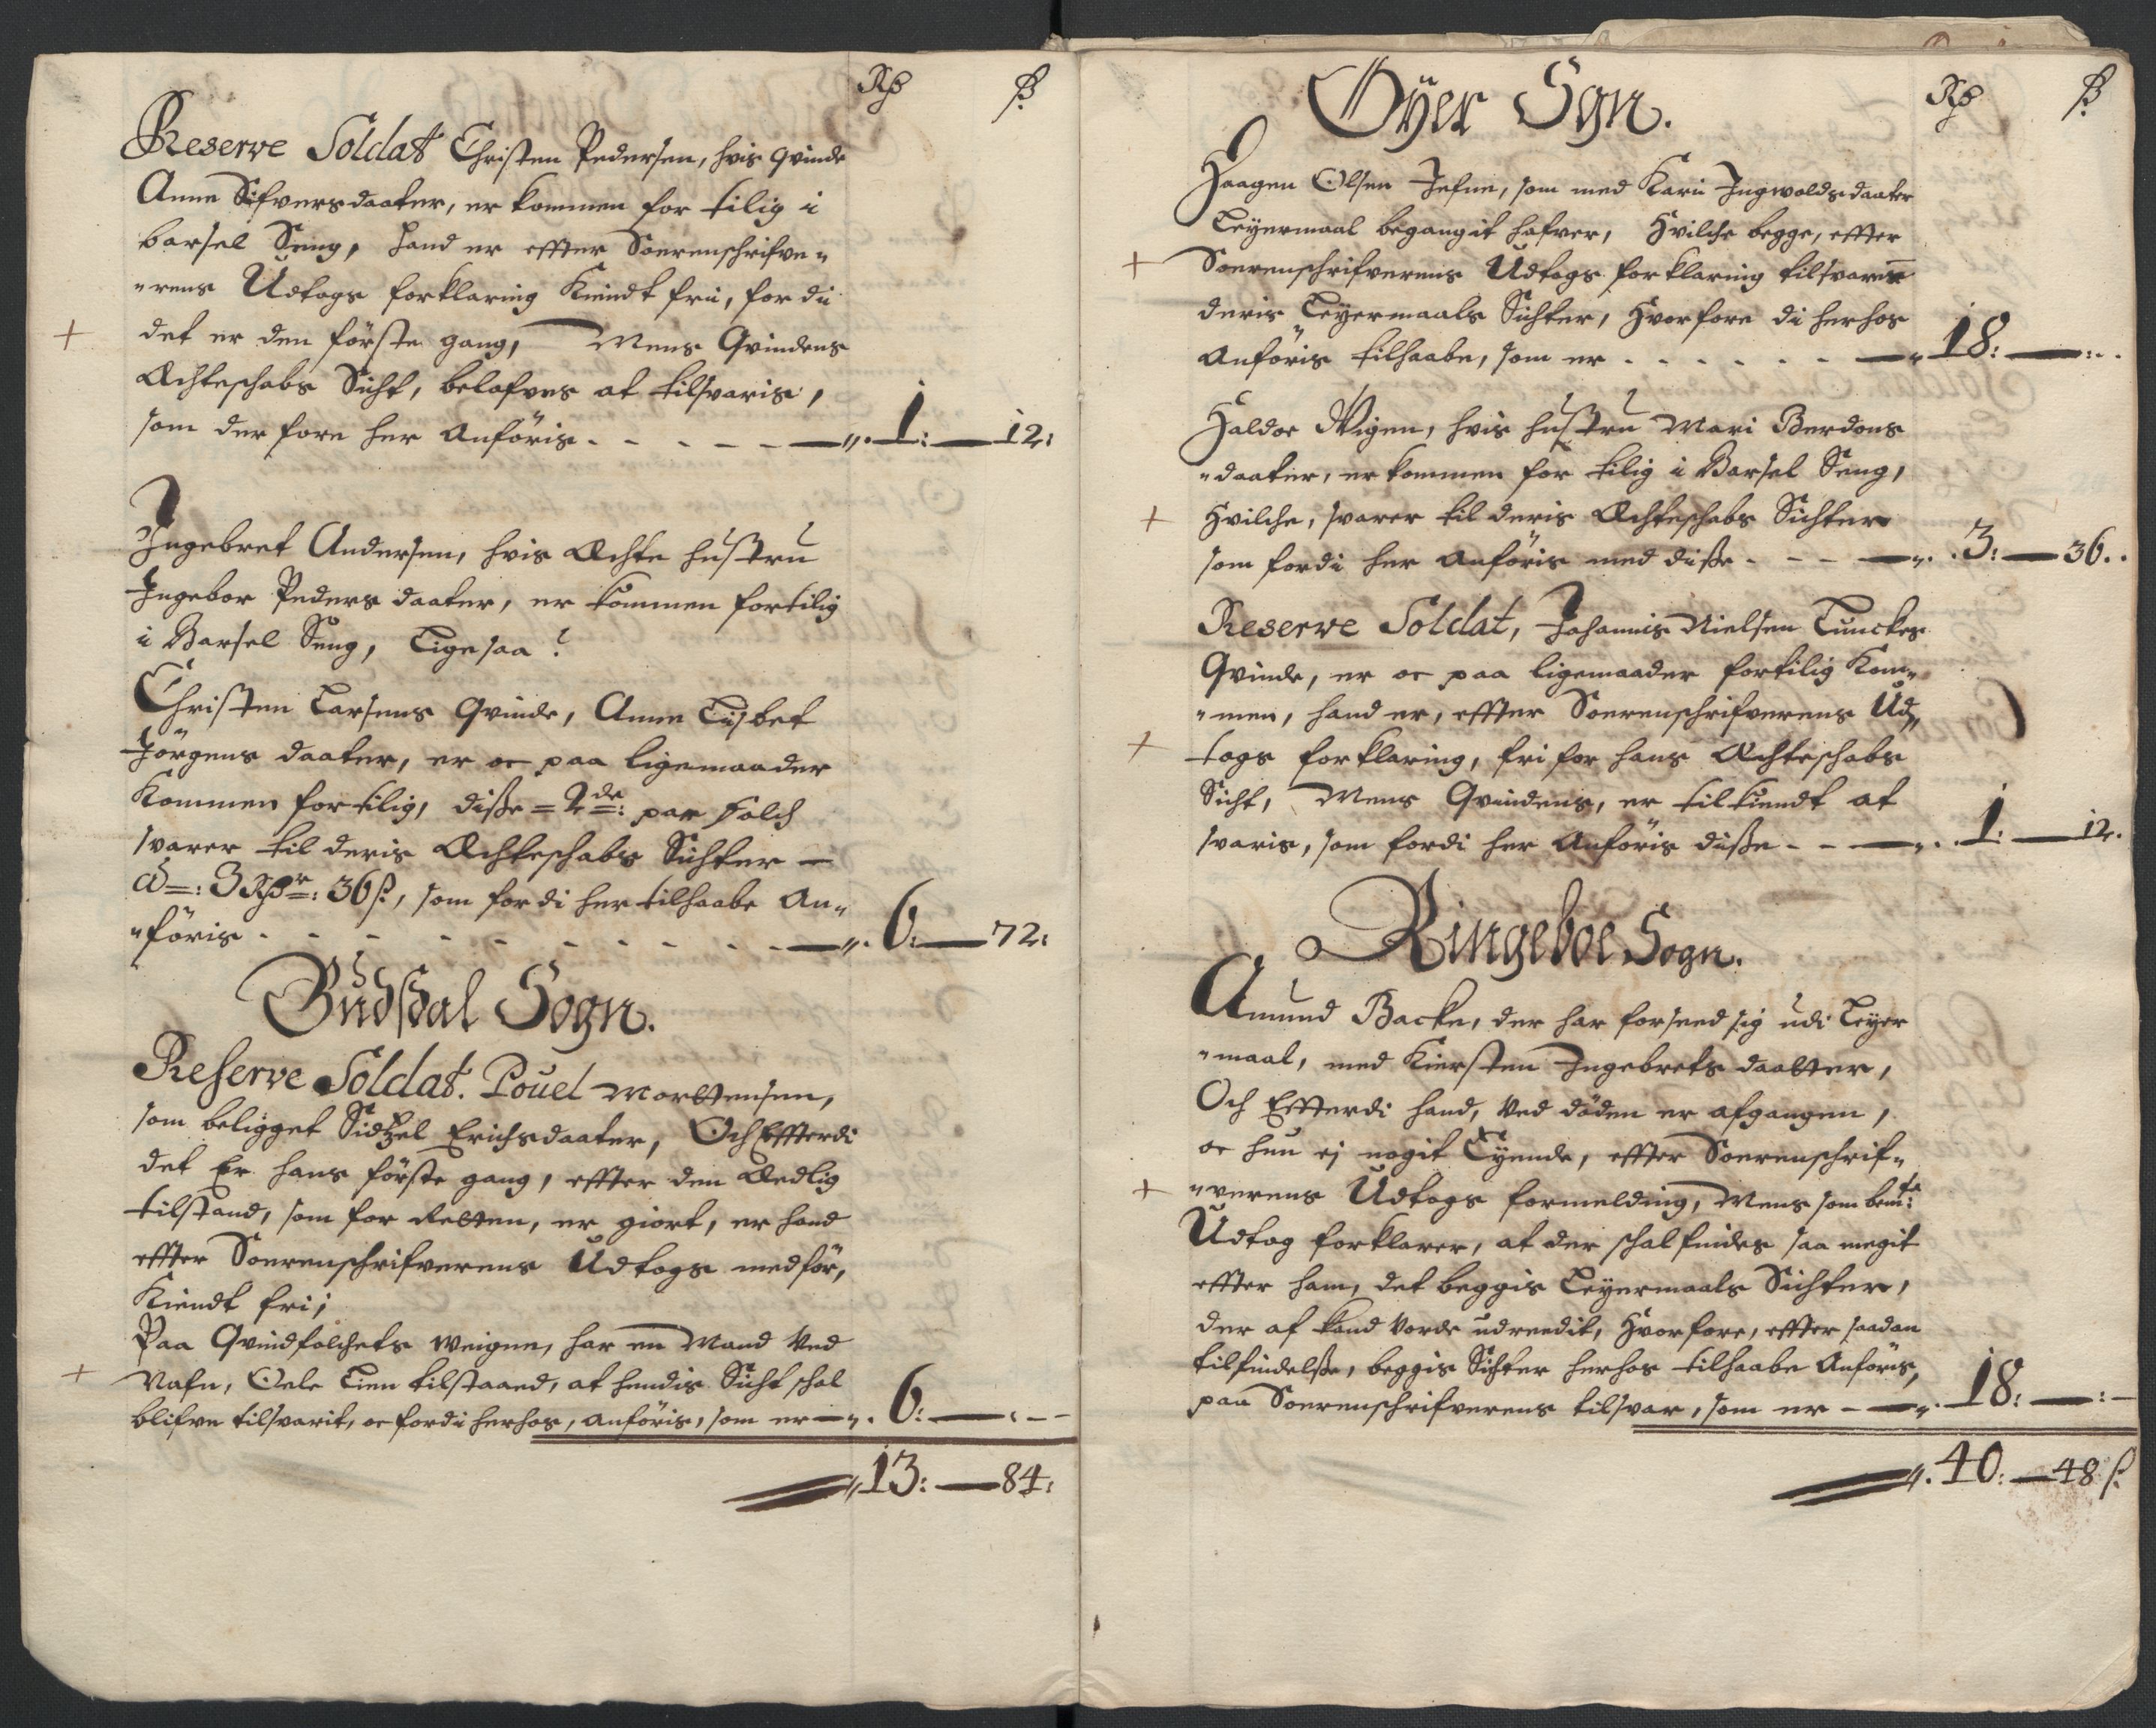 Rdr ß
Reserve Soldat Christen Pedersen, hvis qvinde
Anne Sifversdaater, er kommen for tilig i
barsel Seng, hand er effter Soerenschrifve„
„rens Udtogs forklaring Kiendt frii, for di
+ det er den förste gang, Mens Qvindens
Æchteschabs Sicht, belofves at tilsvaris,
som der fore her Anföris - - - - - — „. 1: — 12:
Ingebret Andersen, hvis Æchte hustru
Ingebor Peders daater, er kommen fortilig
i Barsel Seng, Ligesaa
Christen Larsens Qvinde, Anne Lisbet
Jörgens daater, er oc paa ligemaader
Kommen fortilig, diße = 2de: par Folch
svarer til deris Æchteschabs Sichter —
a =: 3 Rdr: 36 ß, som fordi her tilhaabe An„
„föris - - - - - - - - - — „. 6: — 72:
Gudsdal Sogn.
Reserve Soldat. Pouel Morttensen,
som beligget Sidtzel Erichsdaater, Och Effterdi
det Er hans förste gang, effter den Ædlig
tilstand, som for Retten, er giort, er hand
effter Soerenschrifverens Udtogs medför,
Kiendt fri;
Paa Qvindfolchets Weigne, har en Mand Ved
+ Nafn, Oele Lien tilstaaed, at hendis Sicht schal
blifve tilsvarit, oc fordi herhos, anföris, som er — „. 6: — : - -
„ 13: — 84:
Rdr ß
Öyer Sgn.
Haagen Olsen Jefne, som med Karii Ingwoldsdaater
Leyermaal begangit hafver, Hvilche begge, effter
+ Soerenschrifverens Udtogs forklaring tilsvarer
deris Leyermaals Sichter, Hvorfore di herhos
Anföris tilhaabe, som er - - - - - - — „ 18: — : - .
Haldor Wigen, hvis hustru Mari Berdons
„daater, er kommen for tilig i Barsel Seng,
+ Hvilche, svarer til deris Æchteschabs Sichter
som fordi her Anföris med diße - - - — „. 3: — 36.
Reserve Soldat, Johannis Nielsen Lunckes
Qvinde, er oc paa ligemaader fortilig Kom„
„men, hand er, effter Soerenschrifverens Ud„
+ togs forklaring, fri for hans Æchteschabs
Sicht, Mens Qvindens, er tilkiendt at
svaris, som fordi her Anföris diße - - — „. 1: — 12.
Ringeboe Sogn.
Amund Backe, der har forseed sig udi Leyer
„maal, med Kiersten Ingebrets daatter,
Och Effterdi hand, Ved döden er afgangen,
oc hun ej nogit Eyende, effter Soerenschrif„
+ „verens Udtogs formelding, Mens som bemte:
Udtog forklarer, at der schal findes saa megit
effter ham, det beggis Leyermaals Sichter,
der af kand vorde udreedit, Hvorfore, effter saadan
tilfindelße, beggis Sichter herhos tilhaabe Anföris,
paa Soerenschrifverens tilsvar, som er - — „. 18: — : -
„. 40: — 48 ß